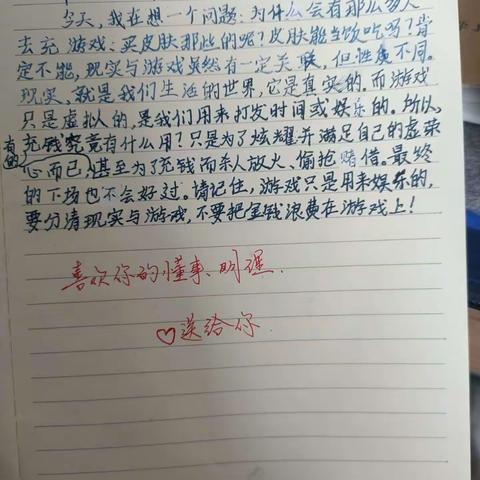 今天,我在想一个问题:为什么会有那么多人
去充游戏:买皮肤那些的呢?皮肤能当饭吃吗?肯
定不能,现实与游戏虽然有一定关联,但性质不同。
现实、就是我们生活的世界,它是真实的。而游戏
只是虚拟的,是我们用来打发时间或娱乐的。所以,
充钱究竟有什么用?只是为了炫耀并满足自己的虚荣
有的
心而已,甚至为了充钱而杀人放火、偷抢赌借。最终
的下场也不会好过。请记住,游戏只是用来娱乐的,
要分清现实与游戏,不要把金钱浪费在游戏上!
喜欢你的懂事、明理.
♡送给你.